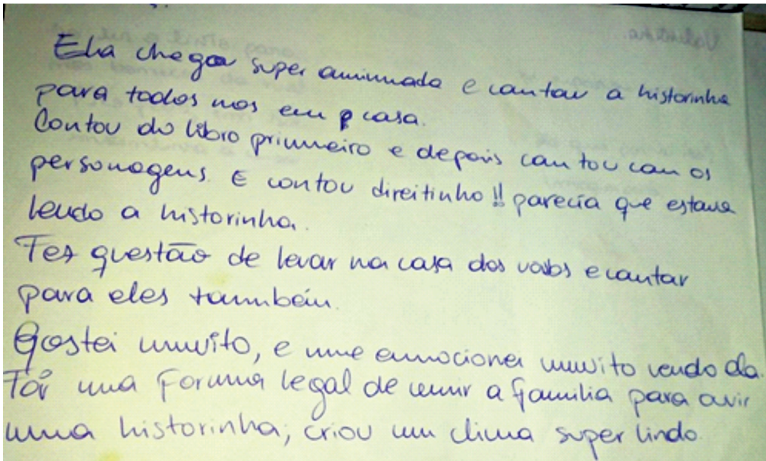 Ela chegou super animada e cantou a historinha
para todos nos em casa.
Contou do libro primeiro e depois cantou can os
personagens. E contou direitinho!! parecia que estava
lendo a historinha.
Fez questão de levar na casa dos vovós e cantar
para eles também.
Gostei muito, e me emocionei muito vendo ela.
Foi uma forma legal de unir a família para ouvir
uma historinha, criou um clima super lindo.